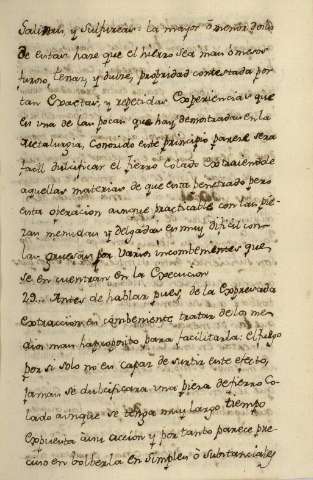 Salinas, y Sulfureas: la mayor ó menor dosis
de estas hace que el hierro sea mas ó menos
furioso, tenaz, y dulze, probridad contestada por
tan Exactas, y repetidas Experiencias que
es una de las pocas que hay demostradas en la
Metalurgia, Conosido este principio parese sera
facil dulcificar el fierro Colado extraiendole
aquellas materias de que esta penetrado pero
esta operacion aunque practicable con las pie
zas menudas y delgadas es muy dificil con
las gruesas por varios incombenientes que
se encuentran en la Execucion
29.. Antes de hablar pues de la Expresada
extraccion es combeniente tratar de los me
dios mas haproposito para facilitarla: el fuego
por si solo no es capaz de surtir este efecto,
Jamas se dulcificara una pieza de fierro Co
lado aunque se tenga muy largo tiempo
Expuesta á su accion y por tanto parece pre
ciso enbolberla en Simples ó substancias